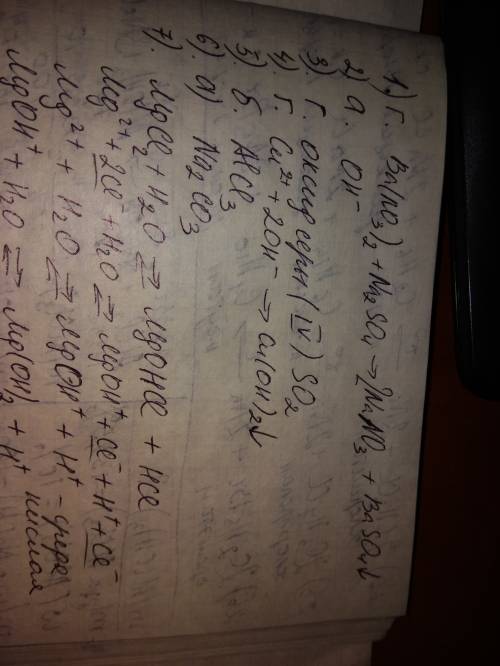 1.) г. Ba(NO3)2 + Na2SO4 → 2NaNO3 + BaSO4↓
2) а. OH⁻
3) г. оксид серы (IV) SO2
4) г. Cu²⁺ + 2OH⁻ → Cu(OH)2↓
5) б. AlCl3
6) а) Na2CO3
7). MgCl2 + H2O ⇄ MgOHCl + HCl
Mg²⁺ + 2Cl⁻ + H2O ⇄ MgOH⁺ + Cl⁻ + H⁺ + Cl⁻
Mg²⁺ + H2O ⇄ MgOH⁺ + H⁺ - среда
MgOH⁺ + H2O ⇄ Mg(OH)2 + H⁺ кислая